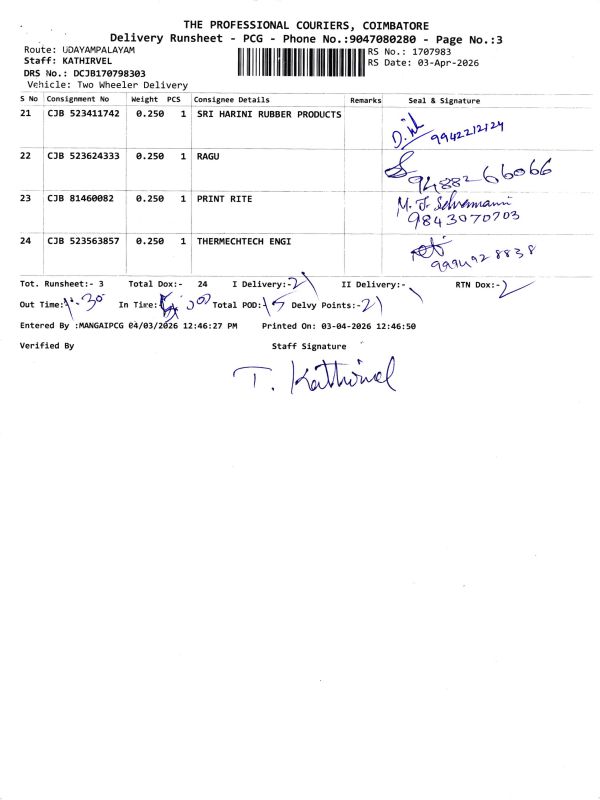 THE PROFESSIONAL COURIERS, COIMBATORE
Delivery Runsheet - PCG - Phone No.:9047080280 - Page No.:3
Route: UDAYAMPALAYAM
Staff: KATHIRVEL
DRS No.: DCJB170798303
Vehicle: Two Wheeler Delivery
RS No.: 1707983
RS Date: 03-Apr-2026
S No Consignment No Weight PCS Consignee Details Remarks Seal & Signature
21 CJB 523411742 0.250 1 SRI HARINI RUBBER PRODUCTS 9942212124
22 CJB 523624333 0.250 1 RAGU 9488266066
23 CJB 81460082 0.250 1 PRINT RITE M. J. Selvamani
9843070703
24 CJB 523563857 0.250 1 THERMECHTECH ENGI 9994928838
Tot. Runsheet:- 3 Total Dox:- 24 I Delivery:- 21 II Delivery:- RTN Dox:- 2
Out Time: 1.30 In Time: Total POD: 15 Delvy Points:- 21
Entered By :MANGAIPCG 04/03/2026 12:46:27 PM Printed On: 03-04-2026 12:46:50
Verified By Staff Signature
T. Kathirvel